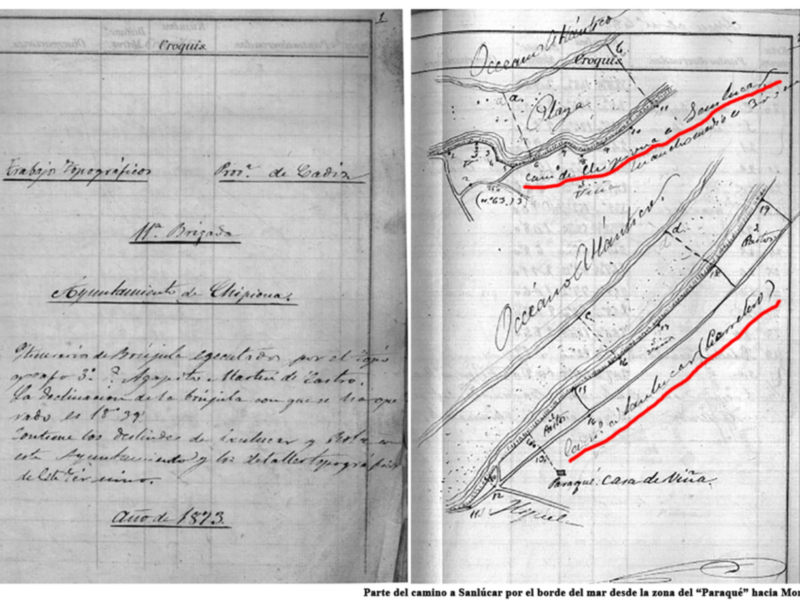 1
Croquis
Trabajos Topográficos Provª. de Cadiz
11ª Brigada
Ayuntamiento de Chipiona
Itinerario de Brújula egecutados por el Topó
grafo 3º D. Agapito Martin de Castro.
La declinacion de la brújula con que se ha ope
rado es 18º 39'
Contiene los deslindes de Sanlucar y Rota con
este Ayuntamiento y los detalles topográficos
de este término.
Año de 1873.
Croquis
Occéano Atlántico
6
a
Playa
11
10
Camº de Chipiona á Sanlucar
Viña
(nº 63.)
Occéano Atlántico.
d
c
19
Pastos
18
Viña
17
16
Camº á Sanlucar (Carretero)
Pastos
13
12
11
Paraqué. Casa de Viña.
Parte del camino a Sanlúcar por el borde del mar desde la zona del “Paraqué” hacia Mon